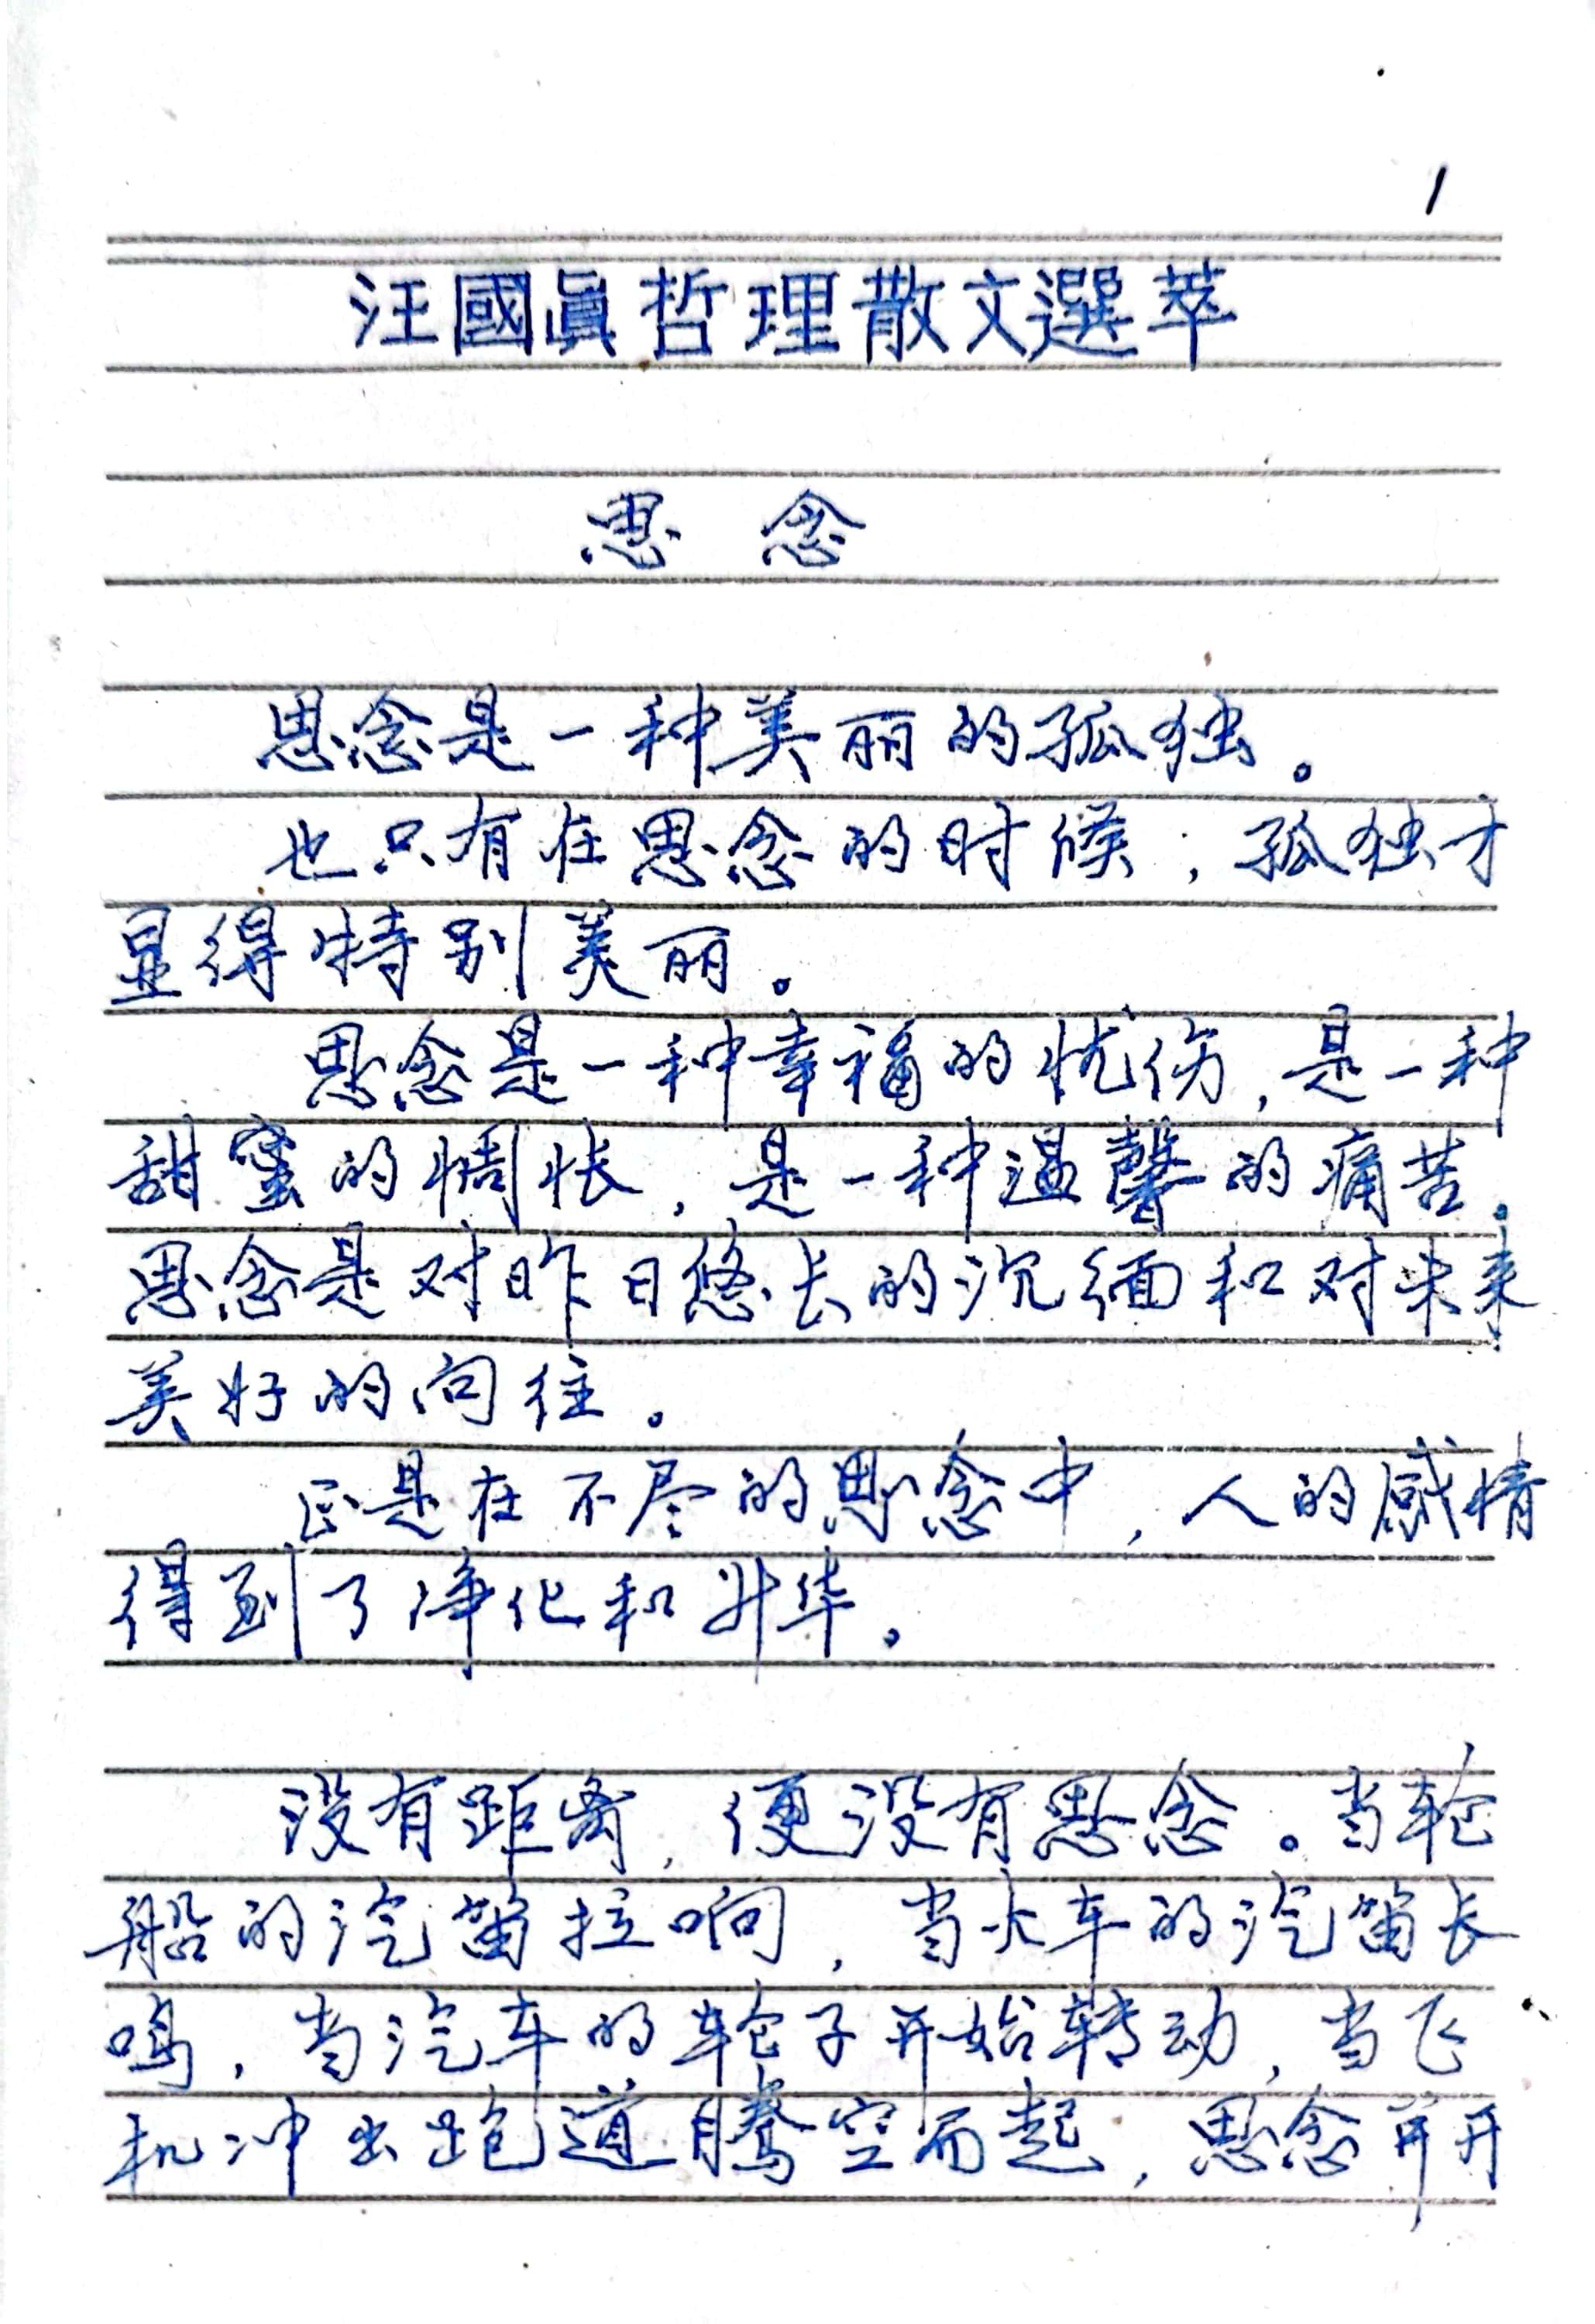 1
汪國眞哲理散文選萃
思念
思念是一种美丽的孤独。
也只有在思念的时候，孤独才
显得特别美丽。
思念是一种幸福的忧伤，是一种
甜蜜的惆怅，是一种温馨的痛苦。
思念是对昨日悠长的沉缅和对未来
美好的向往。
正是在不尽的思念中，人的感情
得到了净化和升华。
没有距离，便没有思念。当轮
船的汽笛拉响，当火车的汽笛长
鸣，当汽车的轮子开始转动，当飞
机冲出跑道腾空而起，思念便开